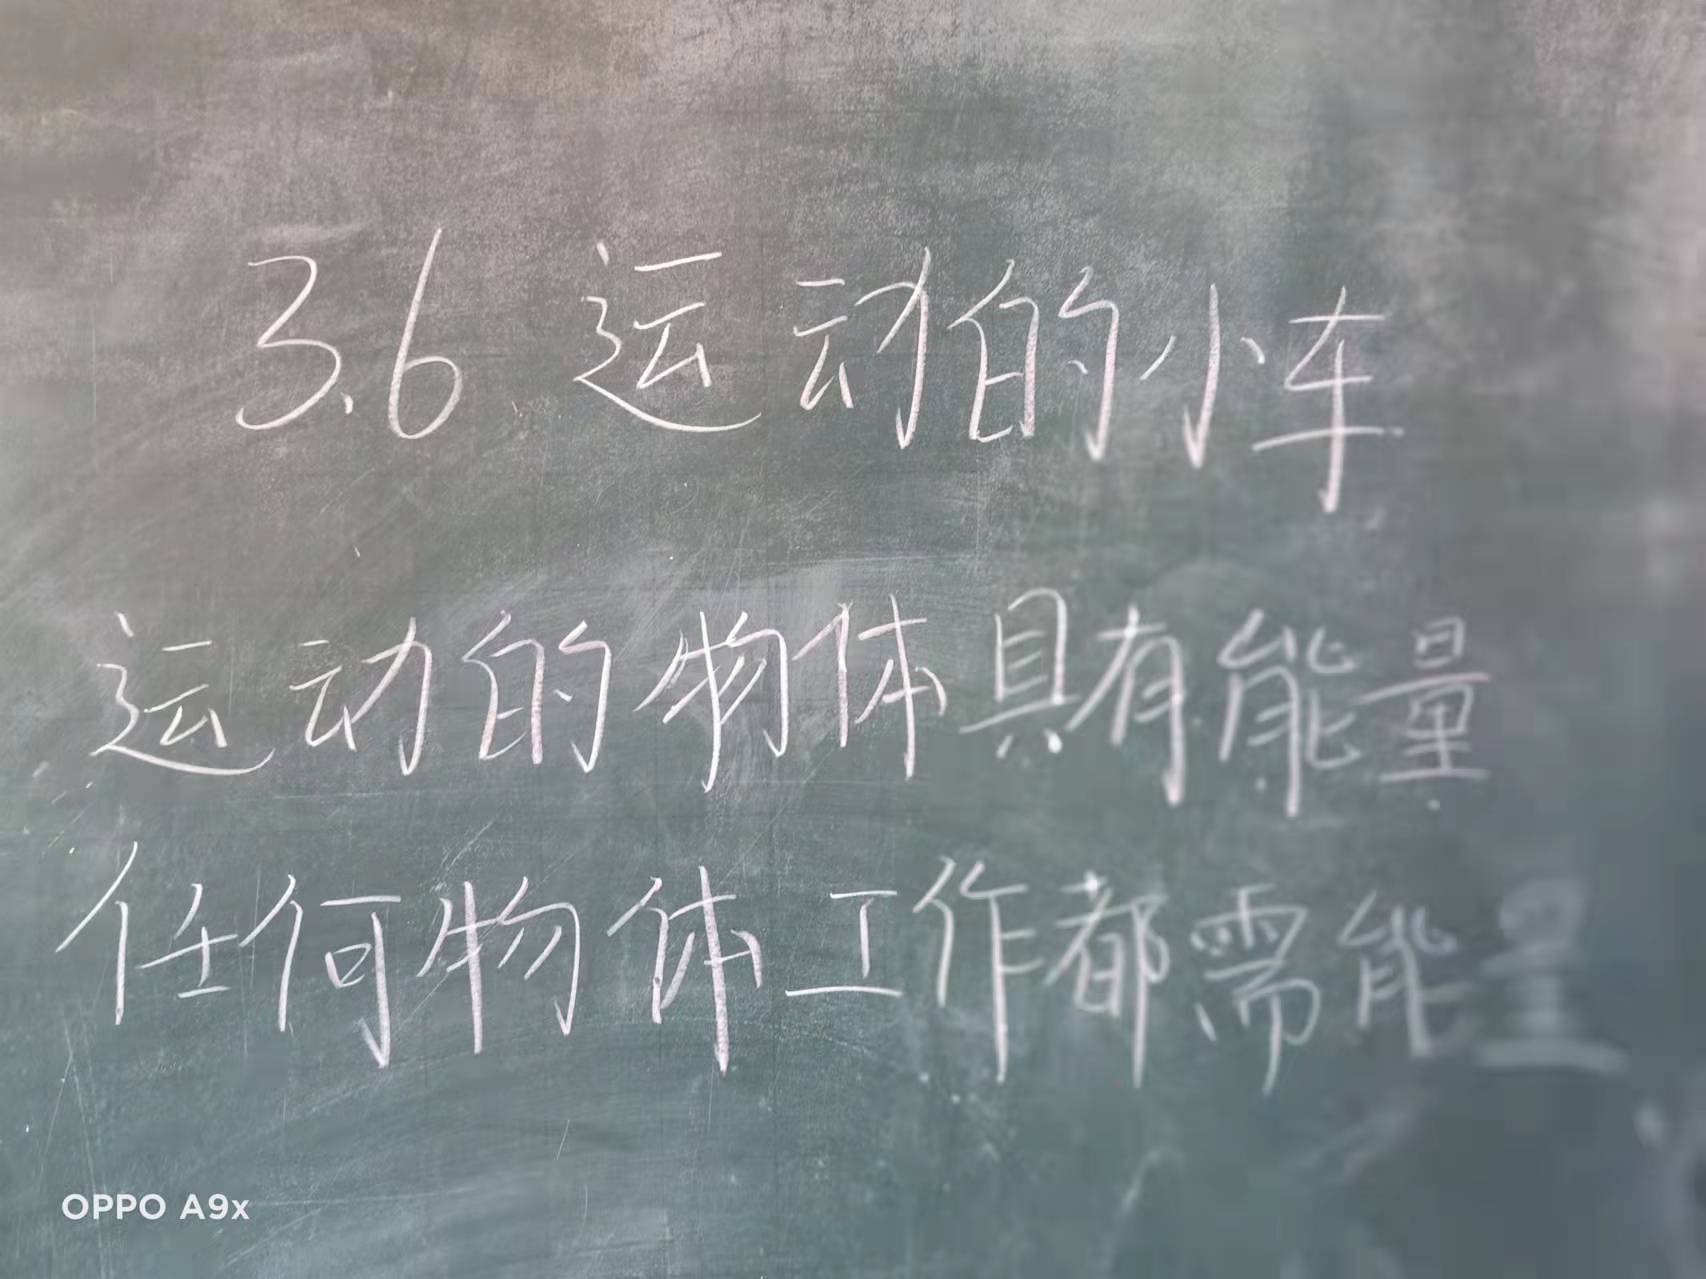 3.6 运动的小车
运动的物体具有能量
任何物体工作都需能量
OPPO A9x